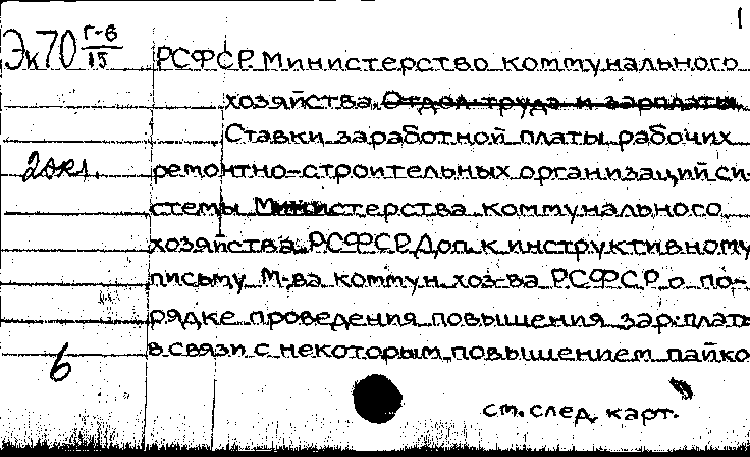 1
Эк70 Г-6/15
РСФСР. Министерство коммунального
хозяйства. Отдел труда и зарплаты.
Ставки заработной платы рабочих
2 экз. ремонтно-строительных организаций си-
стемы Министерства коммунального
хозяйства РСФСР. Доп. к инструктивному
письму М-ва коммун. хоз-ва РСФСР о по-
рядке проведения повышения зарплаты
в связи с некоторым повышением пайко
б
см. след. карт.